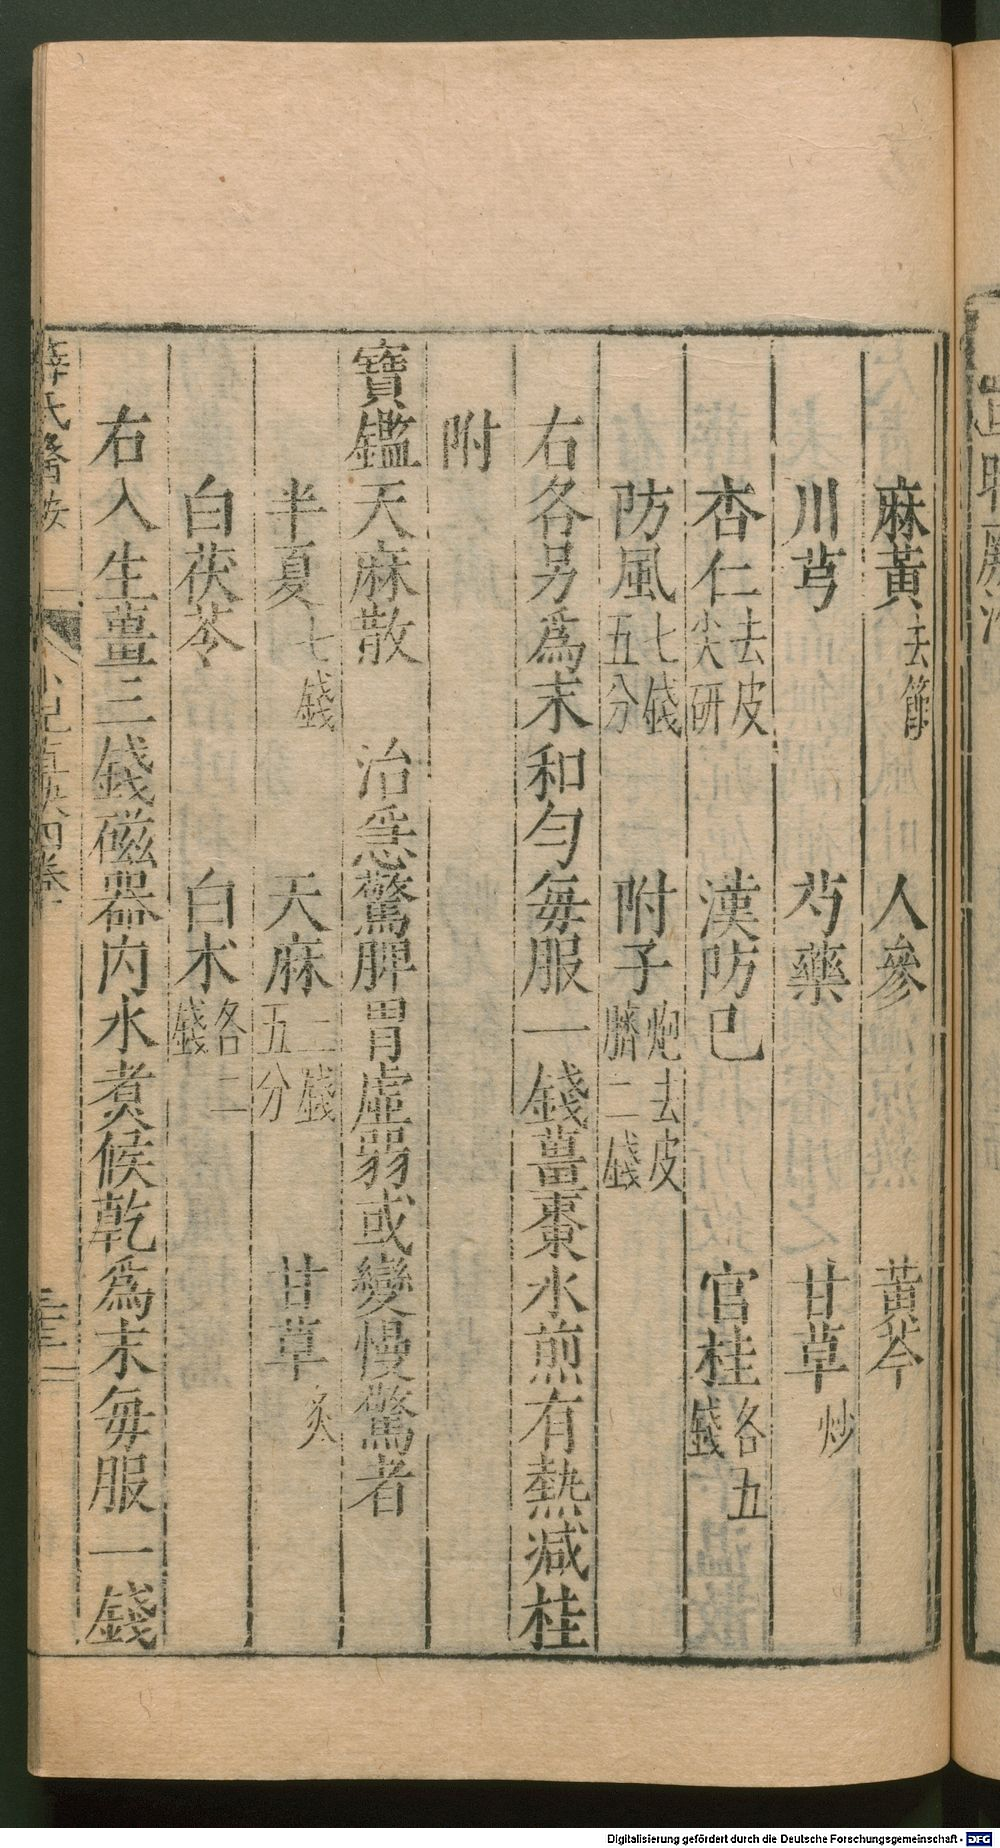 麻黃去節　人參　黃芩
川芎　芍藥　甘草炒
杏仁去皮尖研　漢防己　官桂各五錢
防風七錢五分　附子炮去皮臍二錢
右各另爲末和勻每服一錢薑棗水煎有熱減桂
附
寶鑑天麻散　治急驚脾胃虛弱或變慢驚者
半夏七錢　天麻二錢五分　甘草炙
白茯苓　白朮各二錢
右入生薑三錢磁器內水煮候乾爲末每服一錢
薛氏醫按
Digitalisierung gefördert durch die Deutsche Forschungsgemeinschaft - DFG